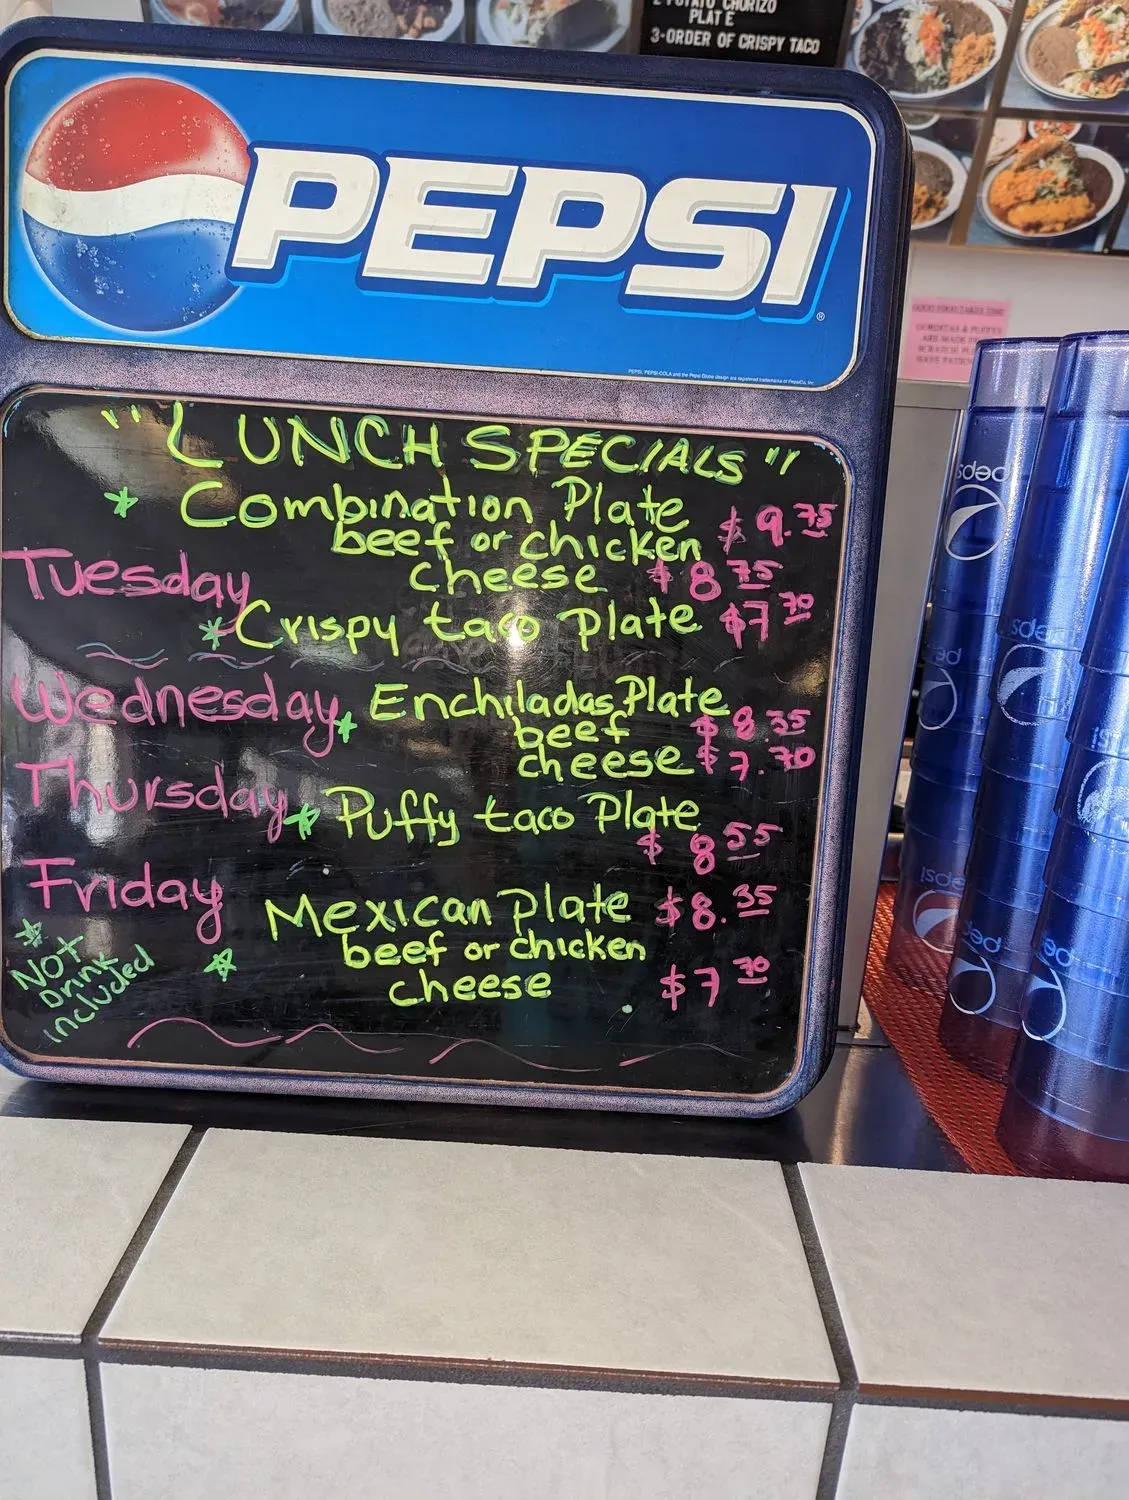 2-POTATO CHORIZO
PLATE
3-ORDER OF CRISPY TACO
PEPSI
®
PEPSI, PEPSI-COLA and the Pepsi Globe design are registered trademarks of PepsiCo, Inc.
"LUNCH SPECIALS"
Combination Plate $9.75
beef or chicken
cheese $8 75
Tuesday
Crispy taco Plate $7 70
Wednesday Enchiladas Plate
beef $8 35
cheese $7.70
Thursday Puffy taco Plate
$8 55
Friday
Mexican plate $8.35
beef or chicken
cheese $7 70
NOT
Drink
included
GORDITAS & PUFFYS
pepsi
pepsi
pepsi
pepsi